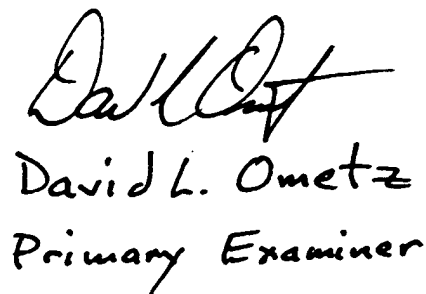 David L Ometz
David L. Ometz
Primary Examiner